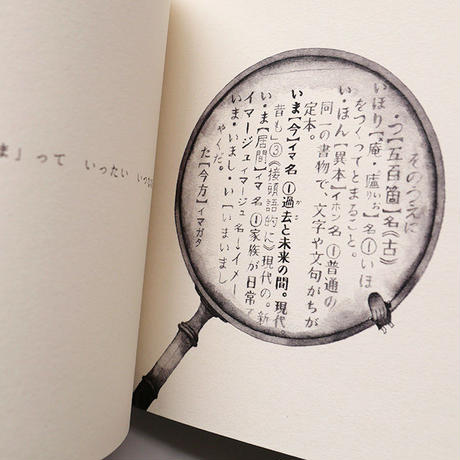 ま」って いったい いつ
そのうえに
・つ【五百箇】名《古》
いほり【庵・廬】名①いほ
をつくってとまること。
い・ほん【異本】イホン名①普通の
同一の書物で、文字や文句がちが
定本。
いま【今】イマ名①過去と未来の間。現代。
昔も」③《接頭語的に》現代の。新
い・ま【居間】イマ名①家族が日常
イマージュィマージュ名→イメー
いま・いまし・い【いまいまし
やくだ。
た【今方】イマガタ